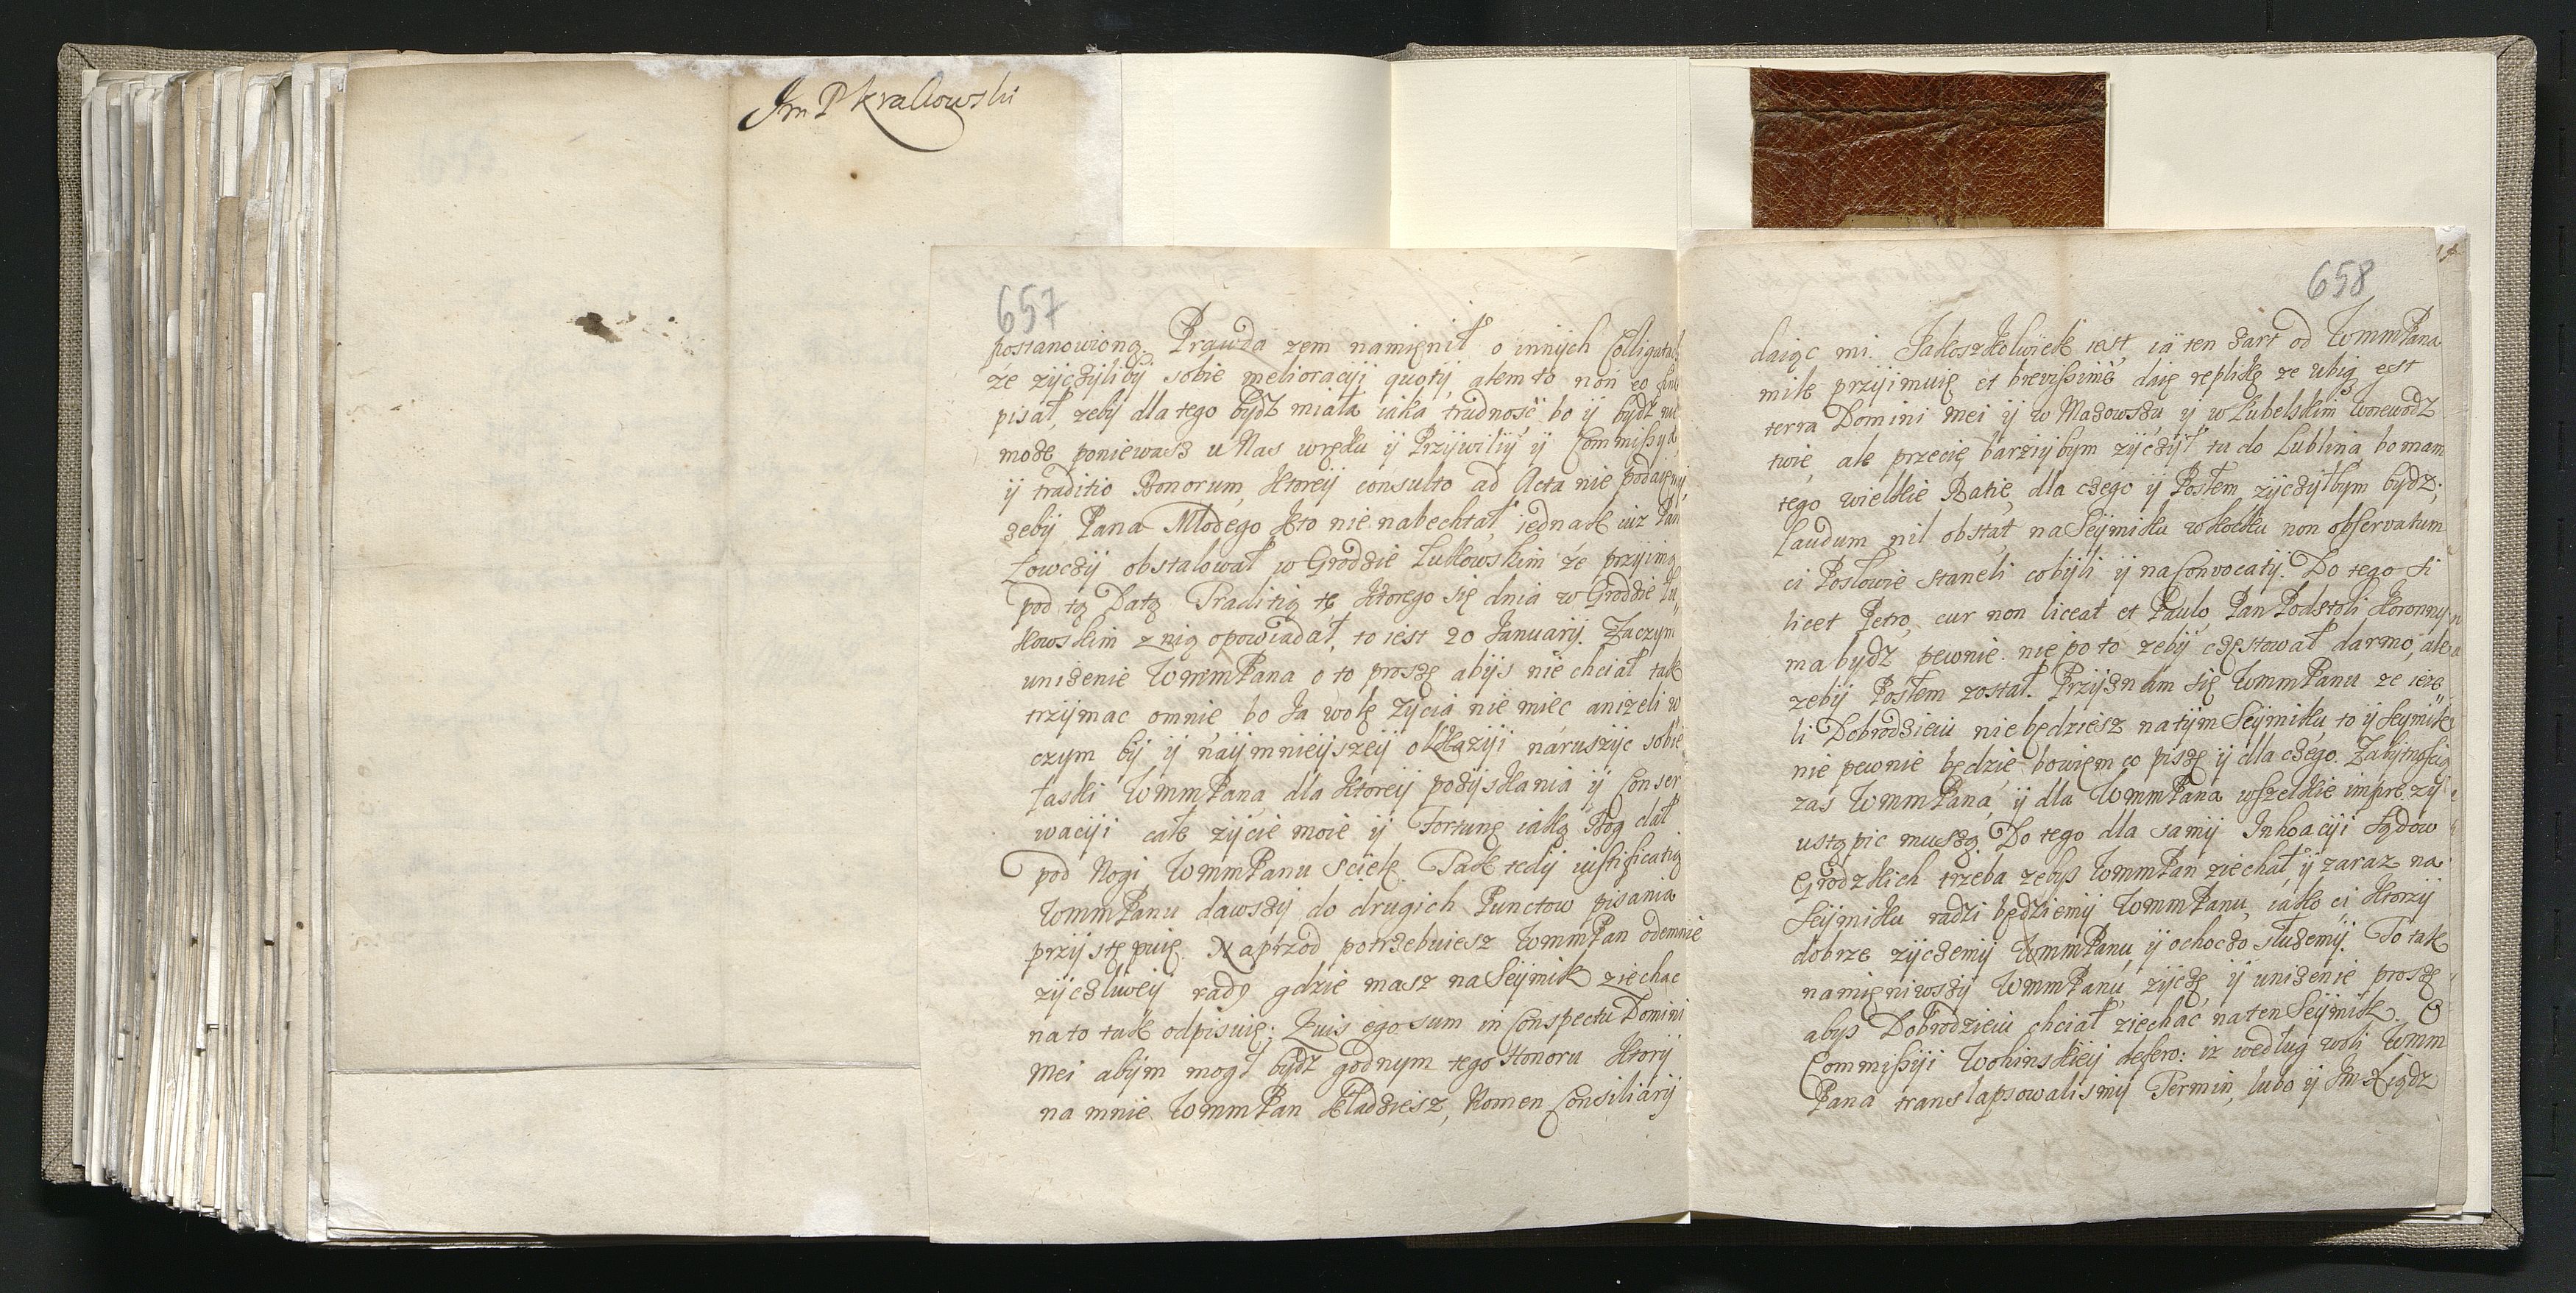 Jm P Krakowski
657
postanowioną. Prawda zem namięnił o innijch Colligatach
że zijcżijlibij sobie melioracyi quotij, alem to non eo fine
pisał, zebij dla tego bydź miała iaka trudność, bo ij bydź nie
może ponieważ u Nas wręku ij Przijwilij ij Commissya
ij traditio Bonorum, ktoreij consulto ad Acta nie podaięmij,
zebij Pana Młodego kto nie nabechtał, iednak iuż Pan
Łowcżij obstalował w Grodzie Łukowskim że przijimą
pod tą Datą Traditią tę ktorego się dnia w Grodzie Łu„
kowskim z nią opowiadał, to iest 20 Januarij. Zaczym
uniżenie WmmPana o to proszę abijs nie chciał tak
trzijmac omnie bo Ja wolę Życia nie miec anizeli w
czym bij ij naijmnieijszeij okkaziji naruszijc sobie
łaski WmmPana dla ktoreij pozijskania ij Conser
waciji całe zijcie moie ij Fortunę iaką Bog dał
pod Nogi WmmPanu sciełę. Tak tedij iustificatią
WmmPanu dawszij do drugich Punctow pisania
przijstępuię. Naprzod potrzebuiesz WmmPan odemnie
zijcżliweij rady gdzie masz na Seijmik ziechac
na to tak odpisuię: Quis ego sum in Conspectu Domini
Mei abijm mogł bydź godnym tego Honoru ktorij
na mnie WmmPan kładziesz, Nomen Consiliarij
658
daiąc mi. Jakoszkolwiek iest, ia ten żart od WmmPana
mile przijimuię et brevissimè daię replikę ze ubiq est
terra Domini Mei ij w Mazowszu ij w Lubelskim Woiewodz
twie, ale przecię barziijbym zijcżijł tu do Lublina, bo mam
tego wielkie Ratie, dla czego ij Posłem zijcżijłbym bydź;
Laudum nil obstat, na Seijmiku w kocku non observatum
ci Posłowie staneli co bijli ij na Convocatij. Do tego si
licet Petro, cur non liceat et Paulo, Pan Podstoli Koronny
ma bydź pewnie. nie po to zebij częstował darmo, ale
zebij Posłem został. Przijznam się WmmPanu ze ieze„
li Dobrodzieiu nie będziesz natijm Seijmiku, to ij Seijmik
nie pewnie będzie bowiem co piszę ij dla czego. Zabijtnoscią
zas WmmPana, ij dla WmmPana wszelkie imprezij
ustąpic muszą. Do tego dla samij Inhoaciji Sądow
Grodzkich trzeba zebys WmmPan ziechał, ij zaraz na
Seijmiku radzi będziemij WmmPanu, iako ci ktorzij
dobrze zijczemij WmmPanu, ij ochoczo służemij. To tak
namięniwszij WmmPanu, zijczę ij uniżenie proszę
abys Dobrodzieiu chciał ziechać na ten Seijmik. O
Commissiji Wohinskieij defero: iz według woli Wmm
Pana translapsowalismij Termin, lubo ij Jm Xiądz